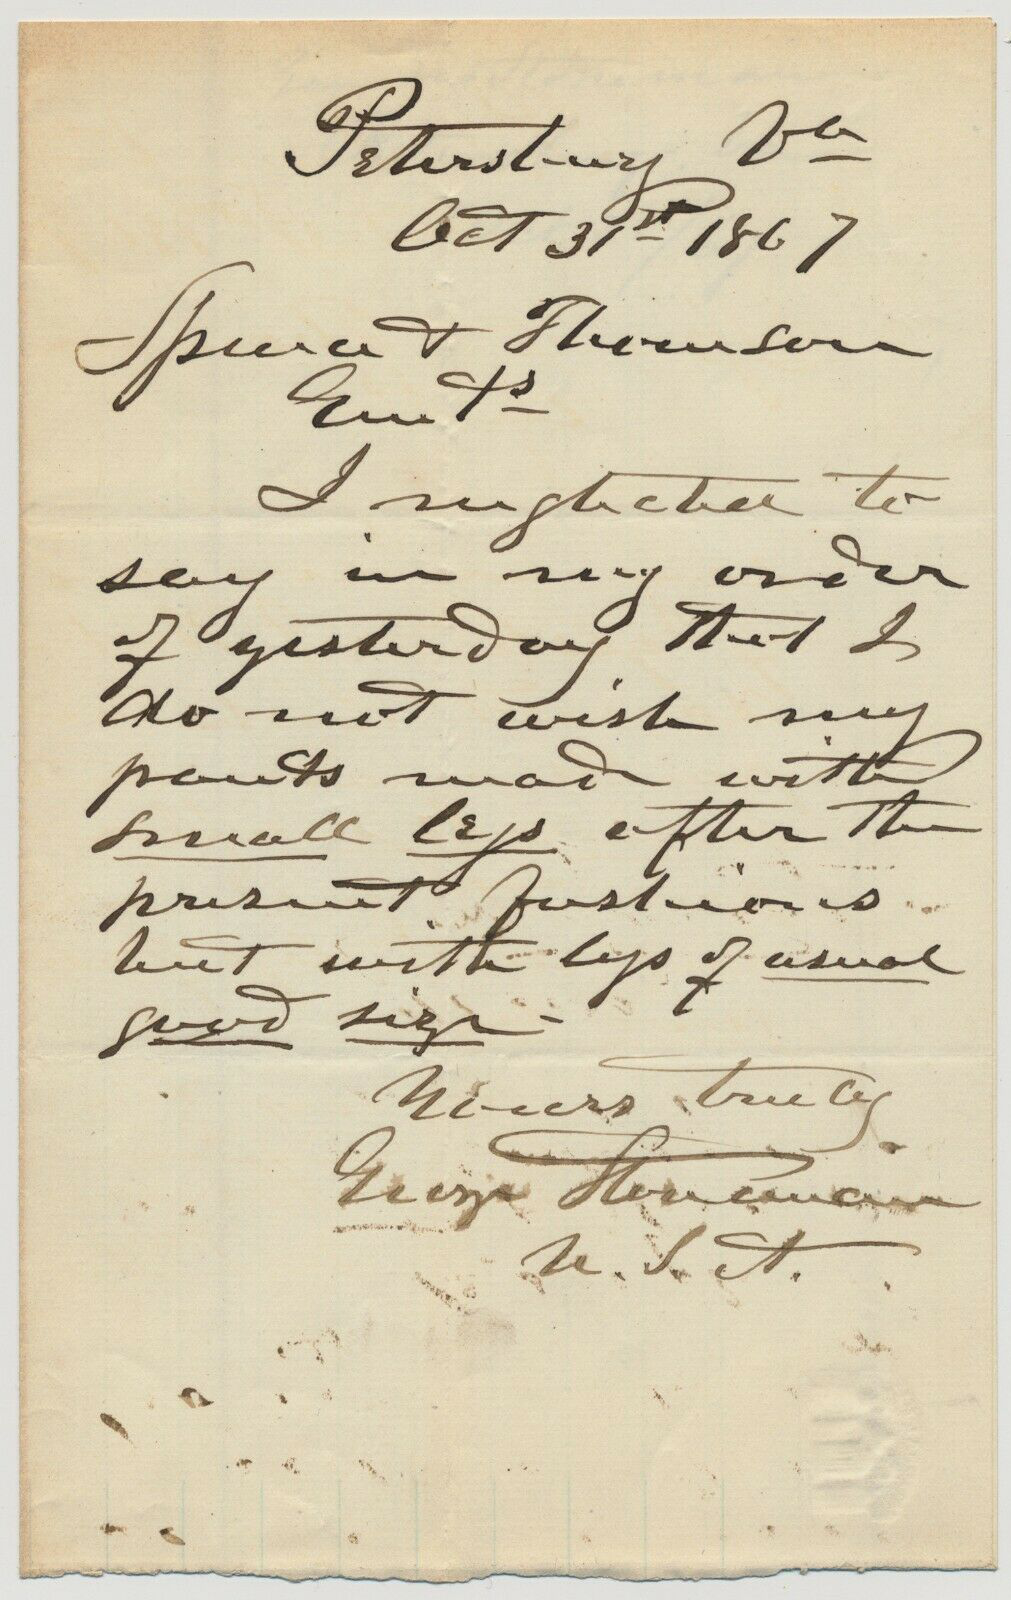 Petersburg Va
Oct 31st 1867
Spence & Thomson
Gents
I neglected to
say in my order
of yesterday that I
do not wish my
pants made with
small legs after the
present fashions
but with legs of usual
good size -
Yours truly
George Stoneman
U. S. A.